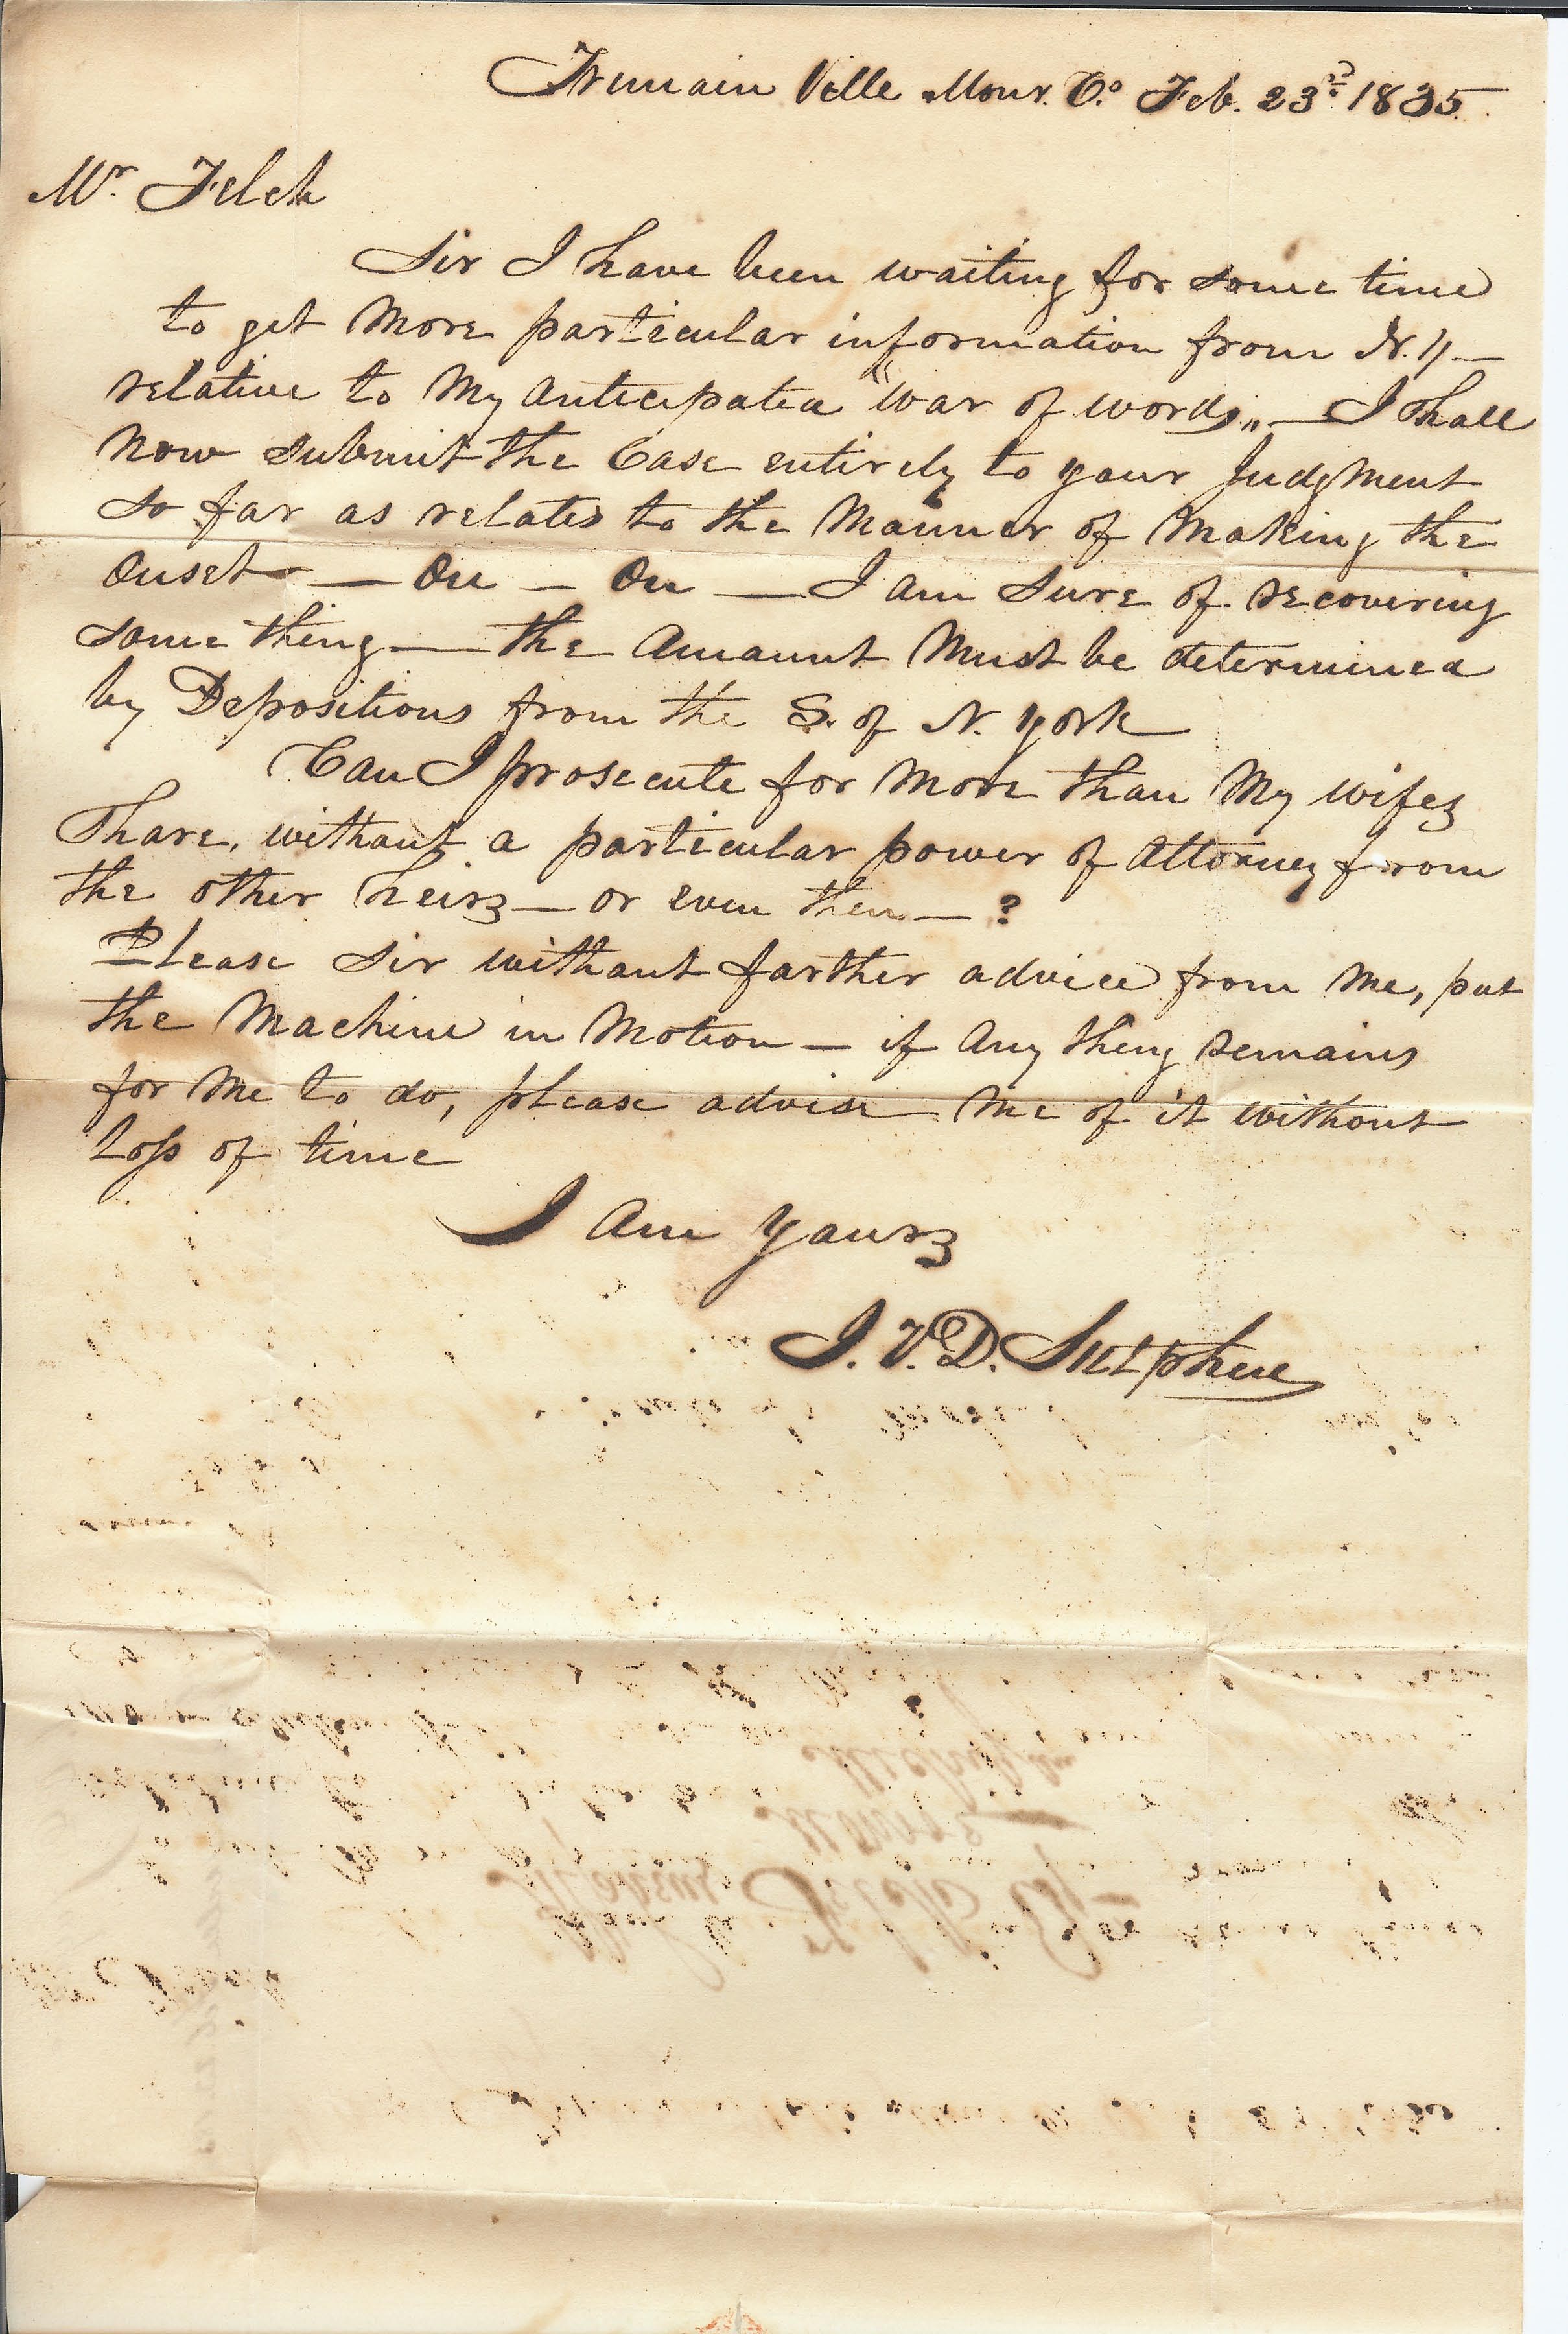 Tremain Ville Monr. Co. Feb. 23d. 1835.
Mr. Felch
Sir I have been waiting for some time
to get More particular information from N.Y—
relative to My anticipated "War of words„—I shall
now submit the Case entirely to your Judgment
so far as relates to the Manner of Making the
Onset — On — On — I am sure of recovering
some thing — the Amount Must be determined
by Depositions from the S. of N. York
Can I prosecute for More than My wifes
share, without a particular power of Attorney from
the other heirs — or even then — ?
Please Sir without farther advice from Me, put
the Machine in Motion — if Any thing remains
for Me to do, please advise Me of it without
Loss of time
I Am Yours
J. V. D. Sutphen